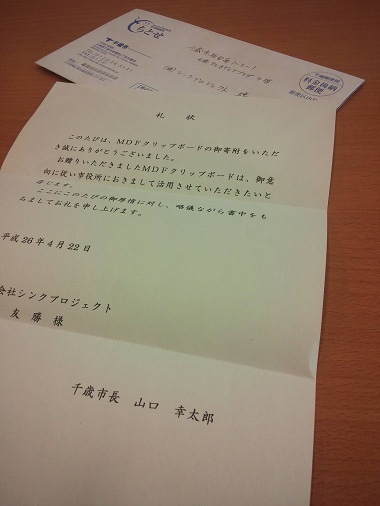 ちとせ
料金後納
郵便
礼　状
このたびは、MDFクリップボードの御寄附をいただ
き誠にありがとうございました。
お贈りいただきましたMDFクリップボードは、御意
向に従い市役所におきまして活用させていただきたいと
存じます。
ここにこのたびの御厚情に対し、略儀ながら書中をも
ちましてお礼を申し上げます。
平成26年4月22日
会社シンクプロジェクト
友勝様
千歳市長　山口　幸太郎